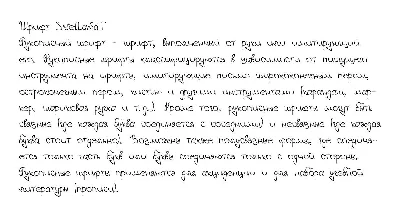 Шрифт SvetLanaT
Рукописный шрифт - шрифт, выполненный от руки или имитирующий
его. Рукописные шрифты классифицируются в зависимости от пишущего
инструмента на шрифты, имитирующие письмо ширококонечным пером,
остроконечным пером, кистью и другими инструментами (карандаш, мар-
кер, шариковая ручка и т.п.). Кроме того, рукописные шрифты могут быть
связные (где каждая буква соединяется с соседними) и несвязные (где каждая
буква стоит отдельно). Возможны также полусвязные формы, где соединя-
ется только часть букв или буквы соединяются только с одной стороны.
Рукописные шрифты применяются для акциденции и для набора учебной
литературы (прописи).